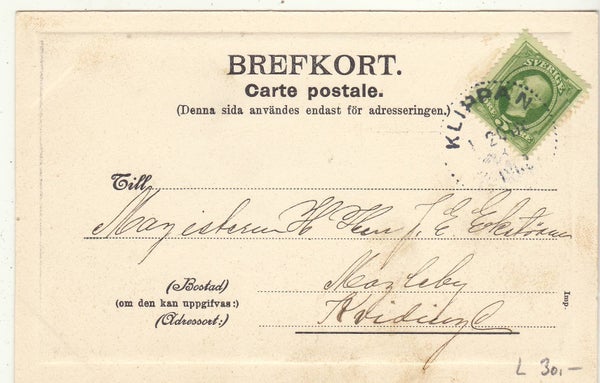 BREFKORT.
Carte postale.
(Denna sida användes endast för adresseringen.)
SVERIGE
KLIPPAN
Till
Magistern H Herr J. E. Ekström
(Bostad)
(om den kan uppgifvas:)
(Adressort:)
Kvidinge
Imp.
L 30,-